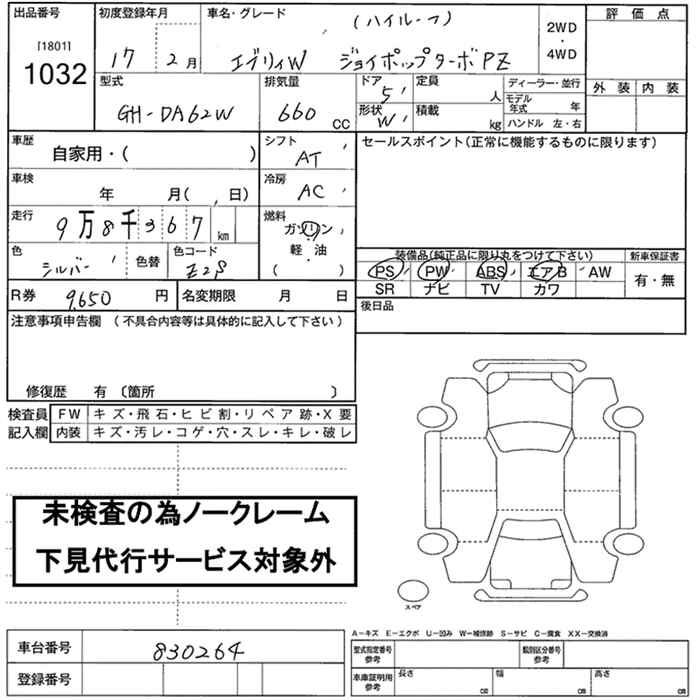 出品番号 初度登録年月 車名・グレード (ハイルーフ) 2WD・4WD 評価点
[1801]
1032 17 2月 エブリィW ジョイポップターボPZ
外装 内装
型式 排気量 ドア 5 定員 人 ディーラー・並行
GH-DA62W 660 CC 形状 W 積載 kg モデル年式 年
ハンドル 左・右
車歴 自家用・( ) シフト AT セールスポイント(正常に機能するものに限ります)
車検 年 月( , 日) 冷房 AC
走行 9万8千367km 燃料 ガソリン・軽油・( )
色 シルバー 色替 色コード Z2S
装備品(純正品に限り丸をつけて下さい) 新車保証書
PS PW ABS エアB AW 有・無
SR ナビ TV カワ
R券 9,650 円 名変期限 月 日 後日品
注意事項申告欄 (不具合内容等は具体的に記入して下さい)
修復歴 有 〔箇所 〕
検査員記入欄 FW キズ・飛石・ヒビ割・リペア跡・X要
内装 キズ・汚レ・コゲ・穴・スレ・キレ・破レ
未検査の為ノークレーム
下見代行サービス対象外
スペア
A-キズ E-エクボ U-凹み W-補修跡 S-サビ C-腐食 XX-交換済
車台番号 830264 型式指定番号参考 類別区分番号参考
登録番号 車庫証明用参考 長さ cm 幅 cm 高さ cm